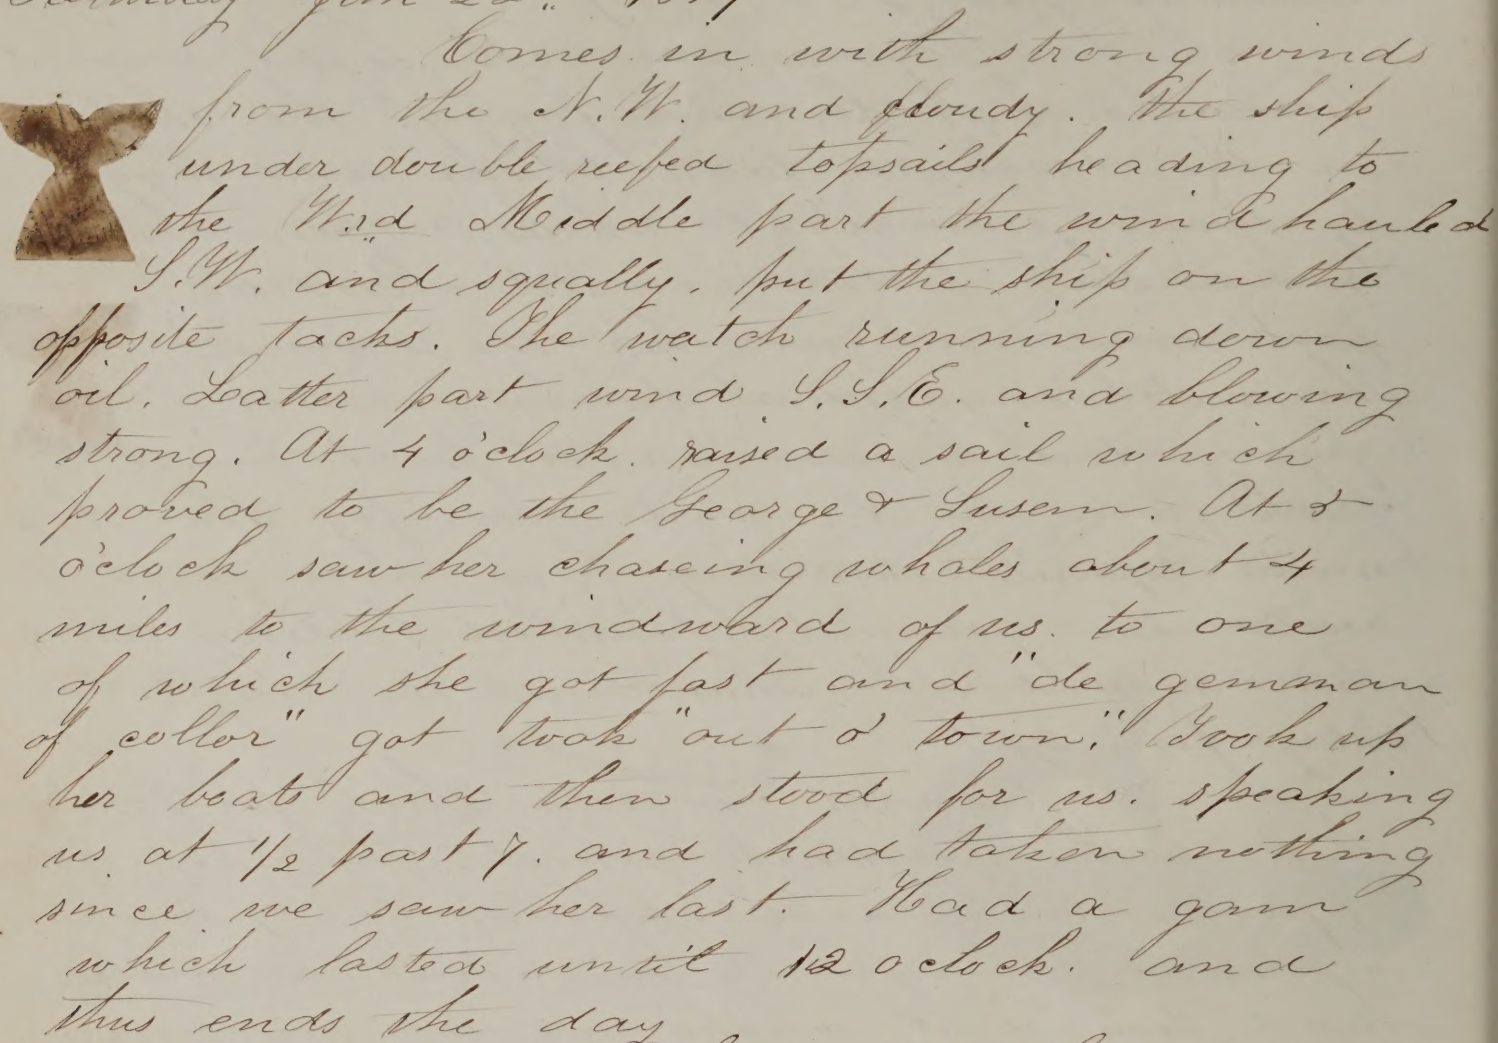 Comes in with strong winds
from the N.W. and cloudy. The ship
under double reefed topsails heading to
the W.rd Middle part the wind hauled
S.W. and squally. put the ship on the
opposite tacks. The watch running down
oil. Latter part wind S.S.E. and blowing
strong. At 4 o'clock. raised a sail which
proved to be the George & Susem. At
o'clock saw her chaseing whales about 4
miles to the windward of us. to one
of which she got fast and "de gemman
of collor" got took "out o' town". Took up
her boats and then stood for us. speaking
us at 1/2 past 7. and had taken nothing
since we saw her last. Had a gam
which lasted until 12 oclock. and
thus ends the day